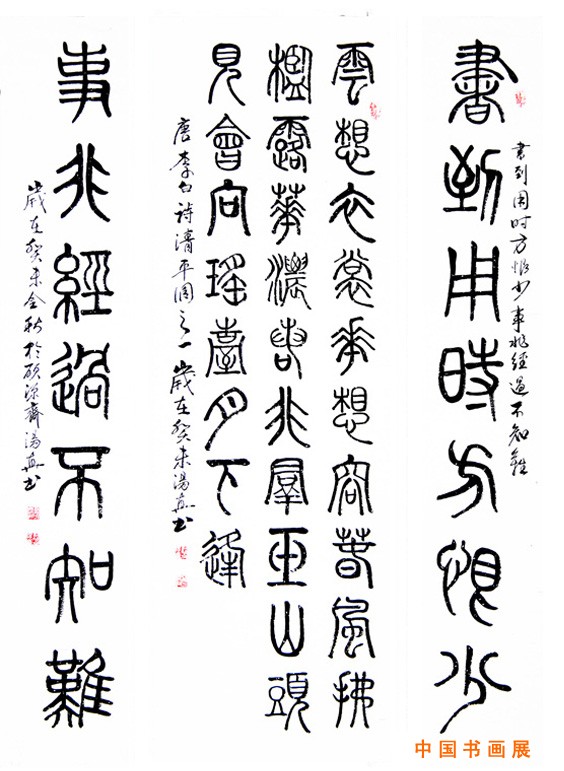 書到用時方恨少
書到用时方恨少事非經過不知難
雲想衣裳華想容春風拂
檻露華濃若非羣玉山頭
見會向瑤臺月下逢
唐李白詩清平調之一 歲在癸未湯真书
事非經過不知難
歲在癸未金秋於齋湯真书
中国书画展